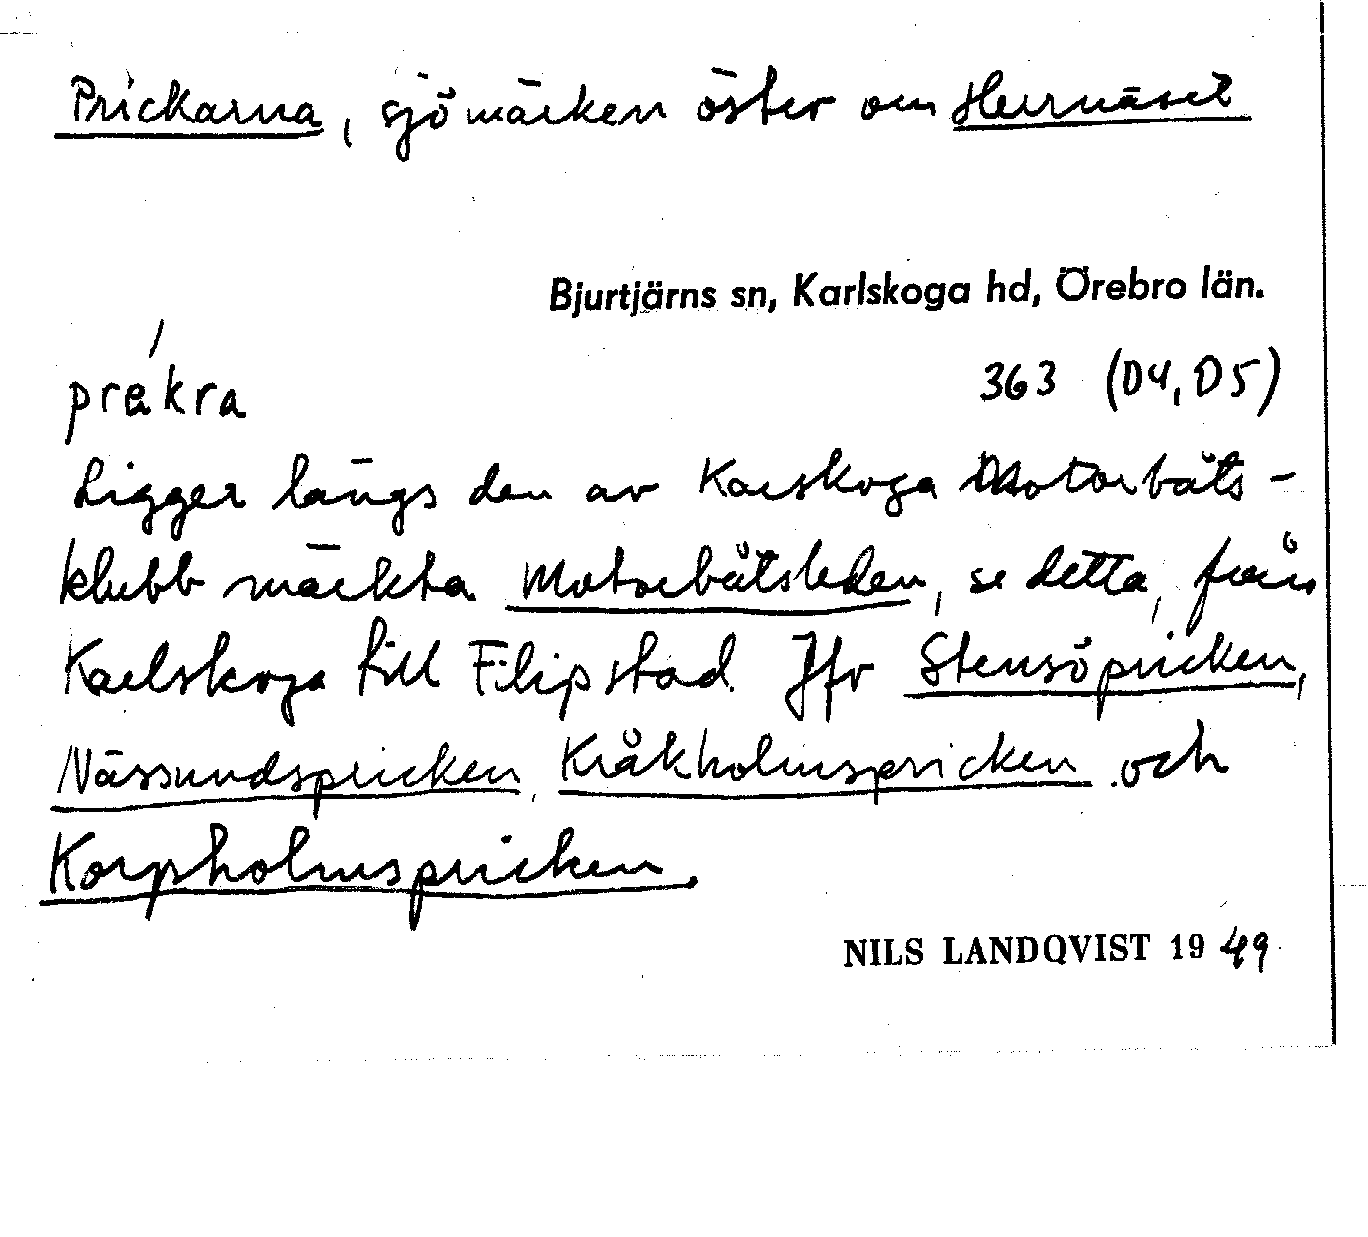 Prickarna, sjömärken öster om Herrnäset
Bjurtjärns sn, Karlskoga hd, Örebro län.
prekra
363 (D4, D5)
Ligger längs den av Karskoga Motorbåts-
klubb märkta Motorbåtsleden, se detta, från
Karlskoga till Filipstad. Jfr Stensöpricken,
Nässundspricken, Kråkholmspricken och
Korpholmspricken.
NILS LANDQVIST 1949